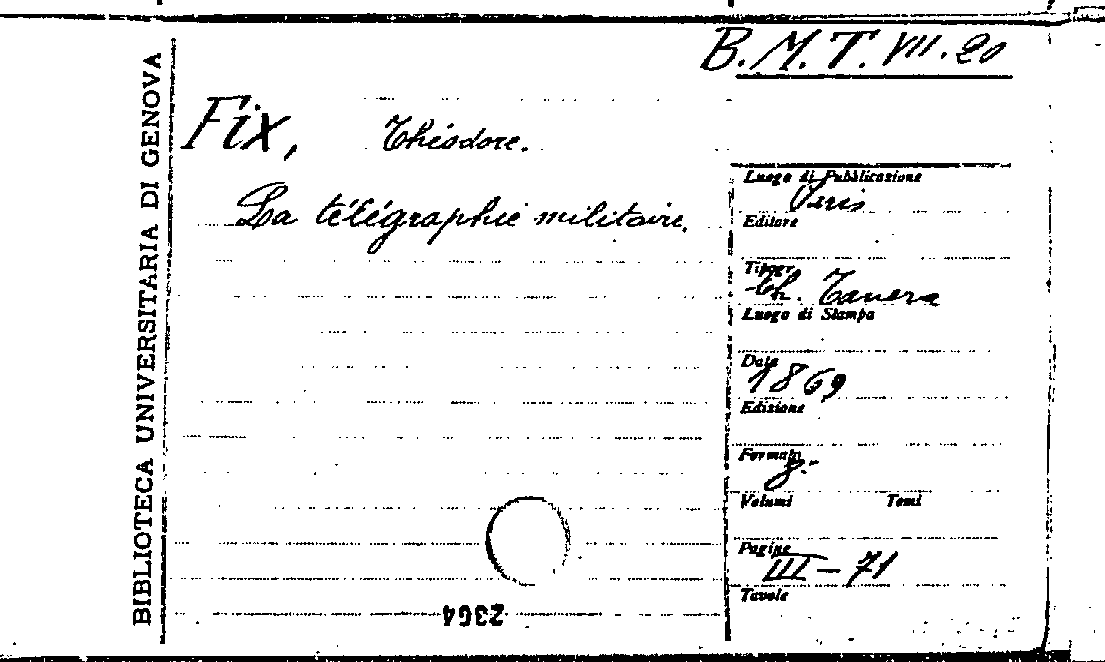 B.M.T. VII. 20
BIBLIOTECA UNIVERSITARIA DI GENOVA
Fix, Théodore.
La télégraphie militaire.
Luogo di Pubblicazione
Paris
Editore
Tipogr.
Ch. Tanera
Luogo di Stampa
Data
1869
Edizione
Formato
8°
Volumi Tomi
Pagine
III-71
Tavole
2364